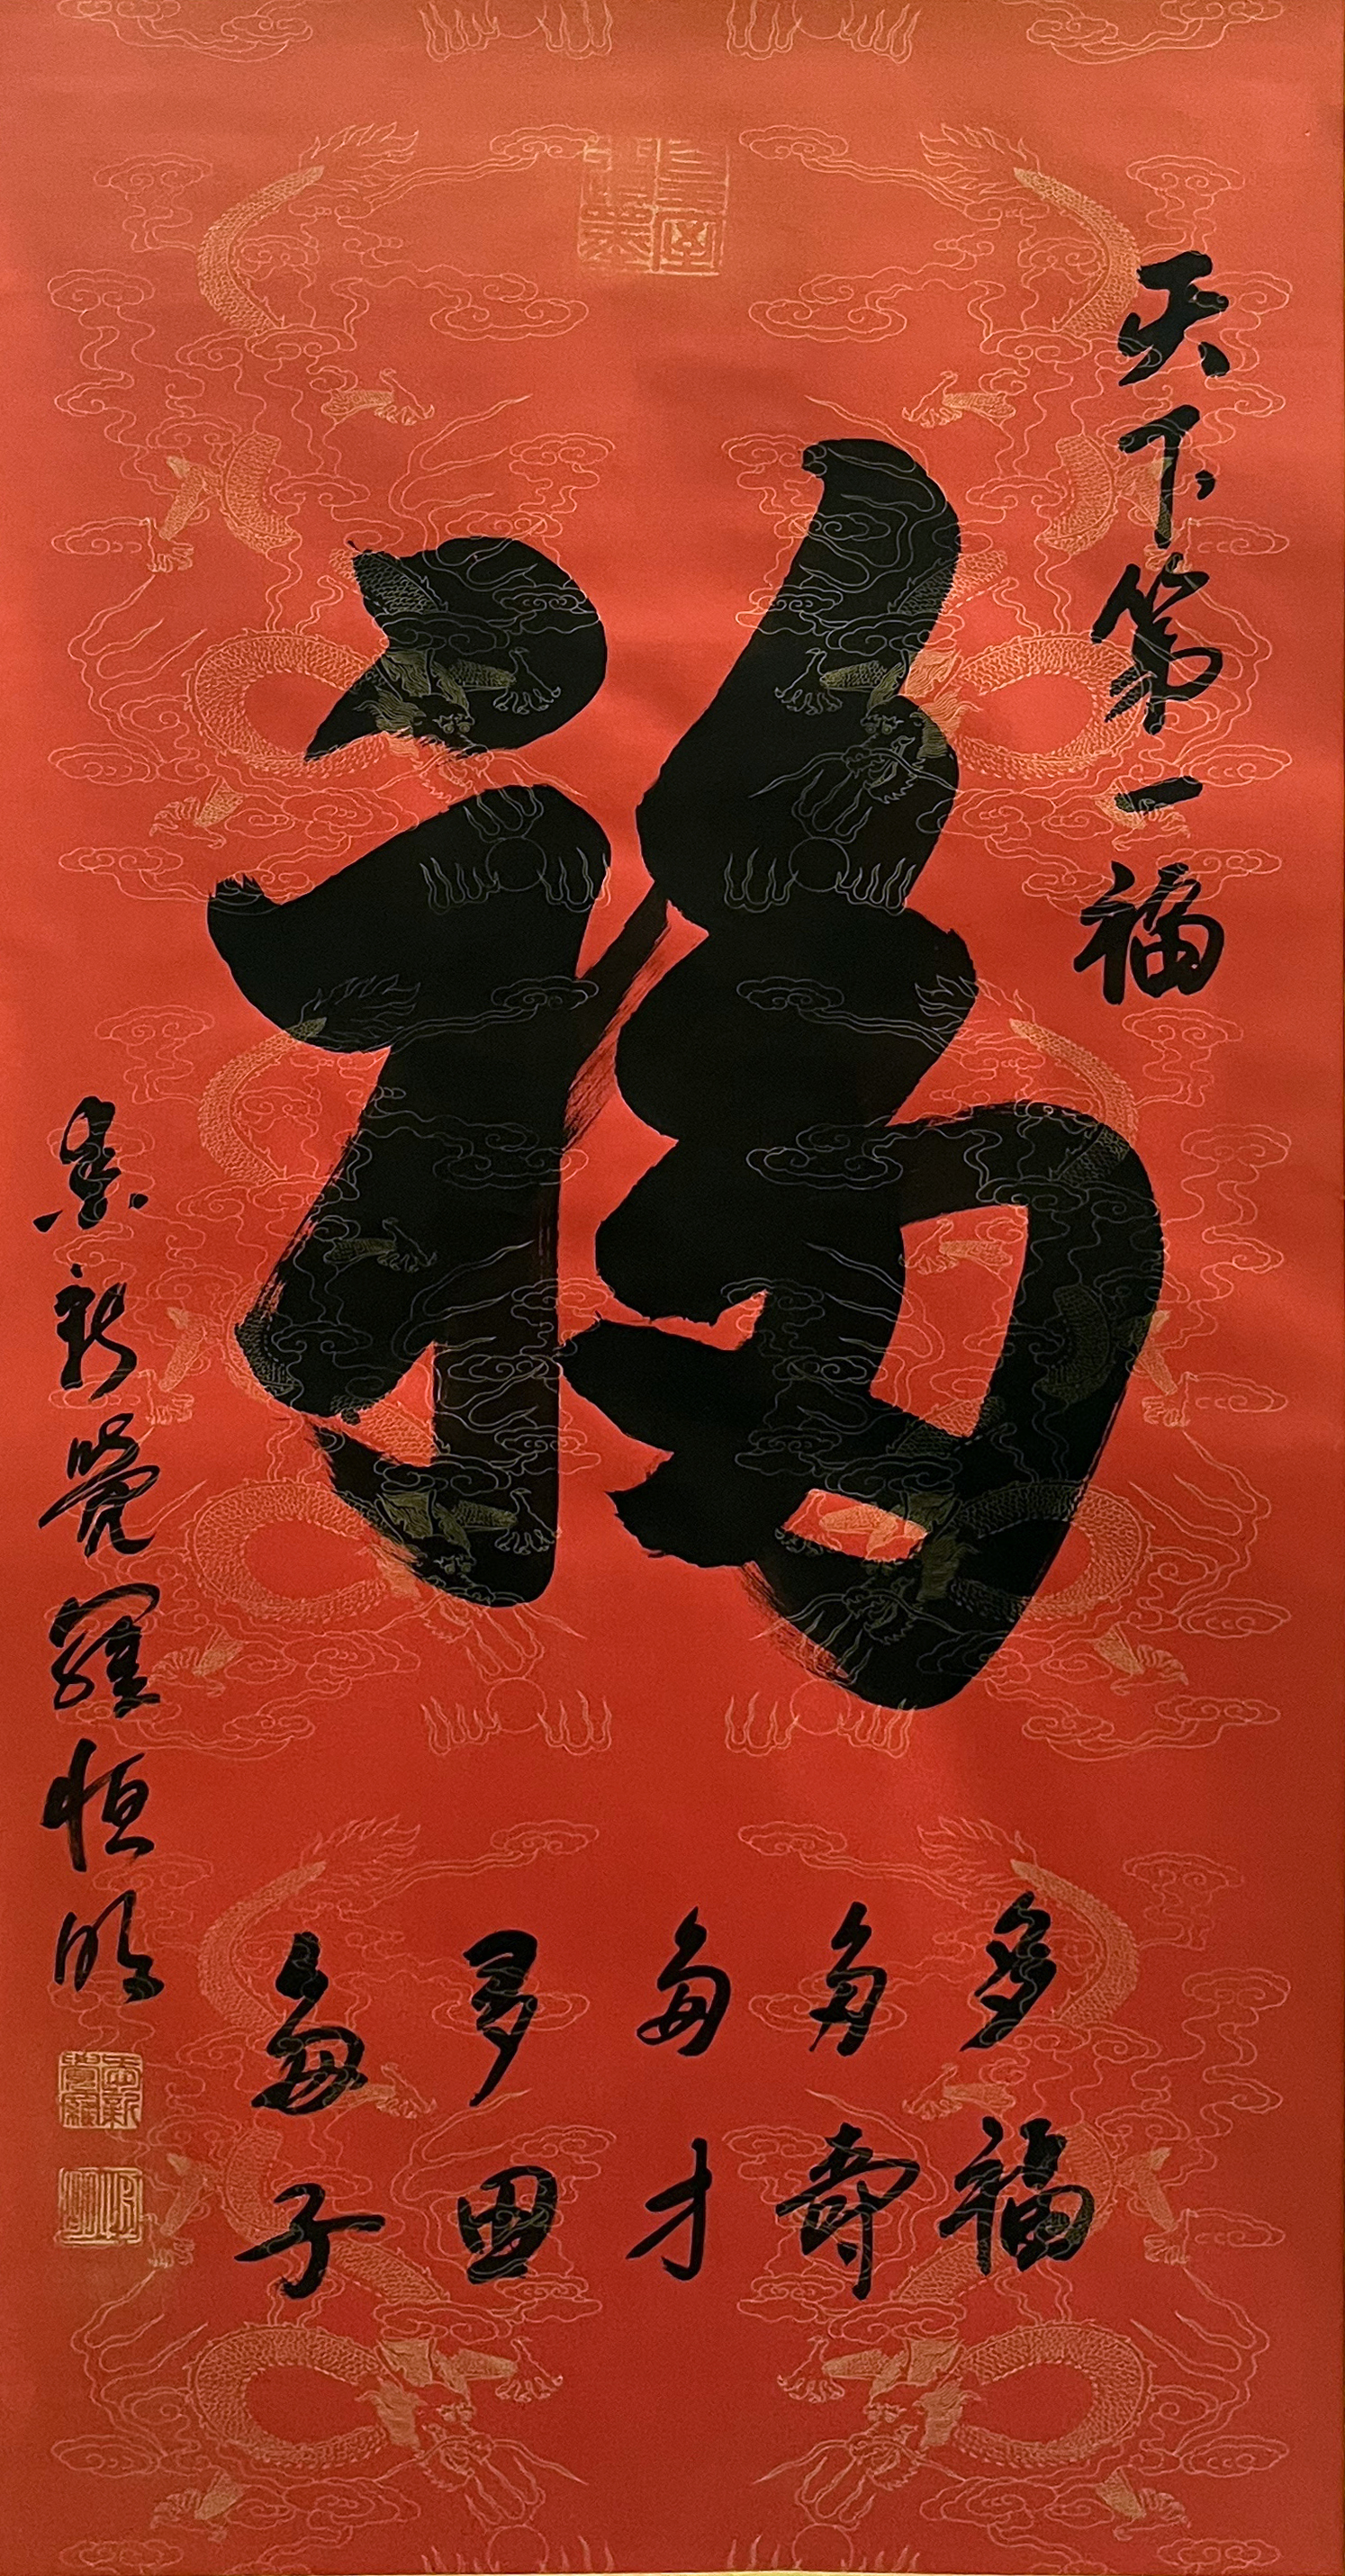 天下第一福
福
多福
多壽
多才
多田
多子
愛新覺羅恒明
愛新覺羅